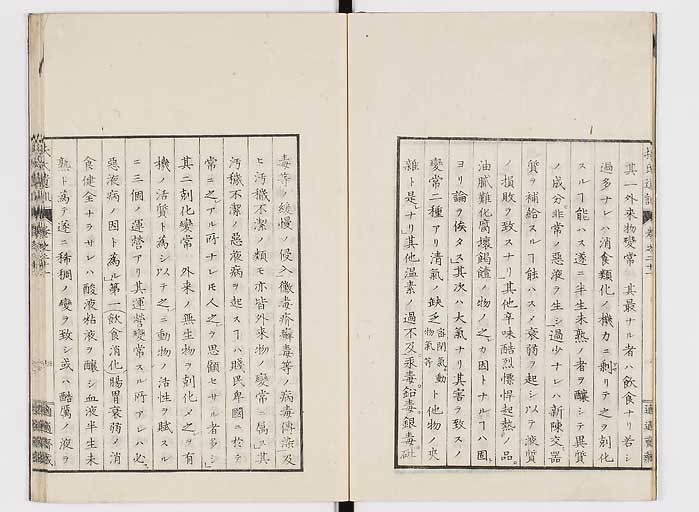 其一外来物變常 其最ナル者ハ飲食ナリ若シ
過多ナレハ消食類化ノ機力ニ剰リテ之ヲ剋化
スルヿ能ハス遂ニ半生未熟ノ者ヲ釀シテ異質
ノ成分非常ノ惡液ヲ生シ過少ナレハ新陳交器
質ヲ補給スルヿ能ハスメ衰弱ヲ起シ以テ液質
ノ損敗ヲ致スナリ其他辛味酷烈慓悍起熱ノ品
油膩難化腐壊餲饐ノ物ノ之カ因トナルヿハ固
ヨリ論ヲ俟タス其次ハ大氣ナリ其害ヲ致スノ
變常二種アリ清氣ノ缺乏ト他物ノ夾
雑ト是ナリ其他温素ノ過不及汞毒鉛毒銀毒砒
毒等ノ緩慢ノ侵入黴毒疥癬毒等ノ病毒傳染及
ヒ汚穢不潔ノ類モ亦皆外来物ノ變常ニ属ス其
汚穢不潔ノ惡液病ヲ起スヿハ賤民卑國ニ於テ
常ニ之アル所ナレ𪜈人之ヲ思顧セサル者多シ
其二剋化變常 外来ノ無生物ヲ剋化メ之ヲ有
機ノ活質ト為シ以テ之ニ動物ノ活性ヲ賦スル
ニ三個ノ運營アリ其運營變常スル所アレハ必
惡液病ノ因ト為ル第一飲食消化腸胃衰弱ノ消
食健全ナラサレハ酸液粘液ヲ釀シ血液半生未
熟ト為テ遂ニ稀稠ノ變ヲ致シ或ハ酷厲ノ液ヲ